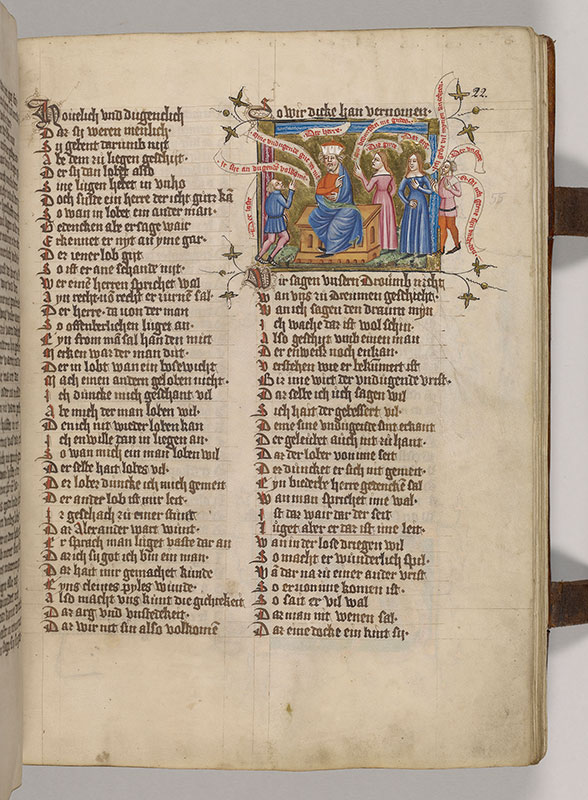 Hovelich vnd dugenlich
Daz sij weren menlich
Sy gebent darumb nijt
Abe dem zu liegen geschijt
Der sij dan lobet also
Sine lugen hebet in vnho
Doch suſte ein herre der icht gutz kā
So wan in lobet ein ander man
Gedencken abe er sage wair
Erkennet er nyt an yme gar
Der iener lob gijt
So ist er ane schande nijt
Wer eine herren sprichet wal
Ayn recht vō recht er zurnē sal
Der herre da von der man
So offenberlichen luget an
Eyn from mā sal han den mut
Merken waz der man dut
Der in lobt wan ein bosewicht
Mach einen andern geloben nicht
Ich duncke mich geschant vil
Abe mich der man loben wil
Den ich nit wieder loben kan
Ich enwille dan in liegen an
So wan mich ein man loben wil
Der selbe hait lobes vil
Der lobez duncke ich mich gemeit
Der ander lob ist mir leit
Iz geschach zu einer stunt
Daz Alexander wart wunt
Er sprach man luget vaste dar an
Daz ich sy got ich bin ein man
Daz hait mir gemachet kunde
Eyns cleines pyles wunde
Also macht vns kunt die gicherkeit
Daz arg vnd vnstedcheit
Daz wir nit sin also volkomē
22
So wir dicke han vernomen
Der herre
Wir sagen vnsern Droumb nicht
Wan vns zu Dreumen geschicht
Wan ich sagen den draum myn
Ich wache daz ist wol schin
Also geschijt vmb einen man
Der enweiß noch enkan
Verstehen wie er bekumert ist
Biz ime wirt der vndugende vrist
Daz selbe ich uch sagen wil
Sich hait der gebessert vil
Deme sine vndugende sint erkant
Der geleubet auch nit zu hant
Daz der lober von ime seit
Der duncket er sich nit gemeit
Eyn biederbe herre gedencken sal
Wan man sprichet ime wal
Ist daz wair daz der seit
Luget aber er daz ist ime leit
Wan in der lose driegen wil
So macht er wunderlich spil
Wā daz na zu einer ander vrist
So er von ime komen ist
So sait er vil wal
Daz man nit wenen sal
Daz eine docke ein kint sy